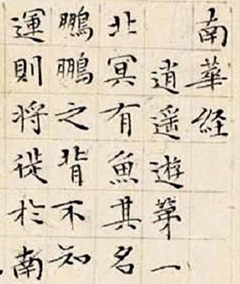 南華経
逍遥遊第一
北冥有魚其名
鵬鵬之背不知
運則将徙於南